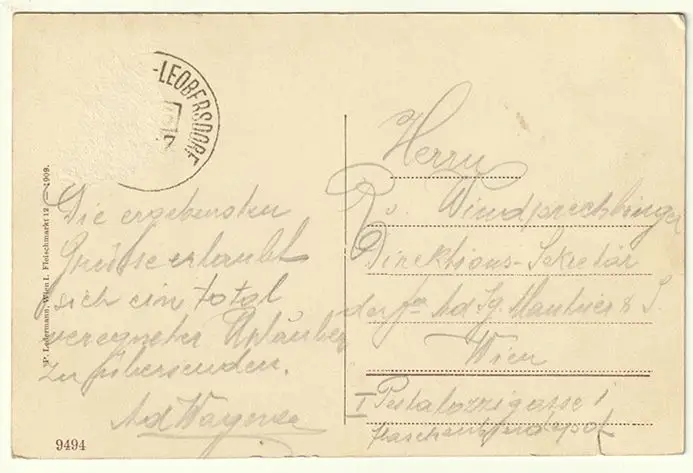 -LEOBERSDORF
7
Die ergebensten
Grüsse erlaubt
sich ein total
verregneter Urlauber
zu übersenden.
Ad Wagner
Herrn
Direktions-Sekretär
der Fa Ad. Ig. Mautner & S.
Wien
I Pestalozzigasse 1
Flaschenbierdepot
P. Ledermann, Wien I. Fleischmarkt 12 — 1909.
9494